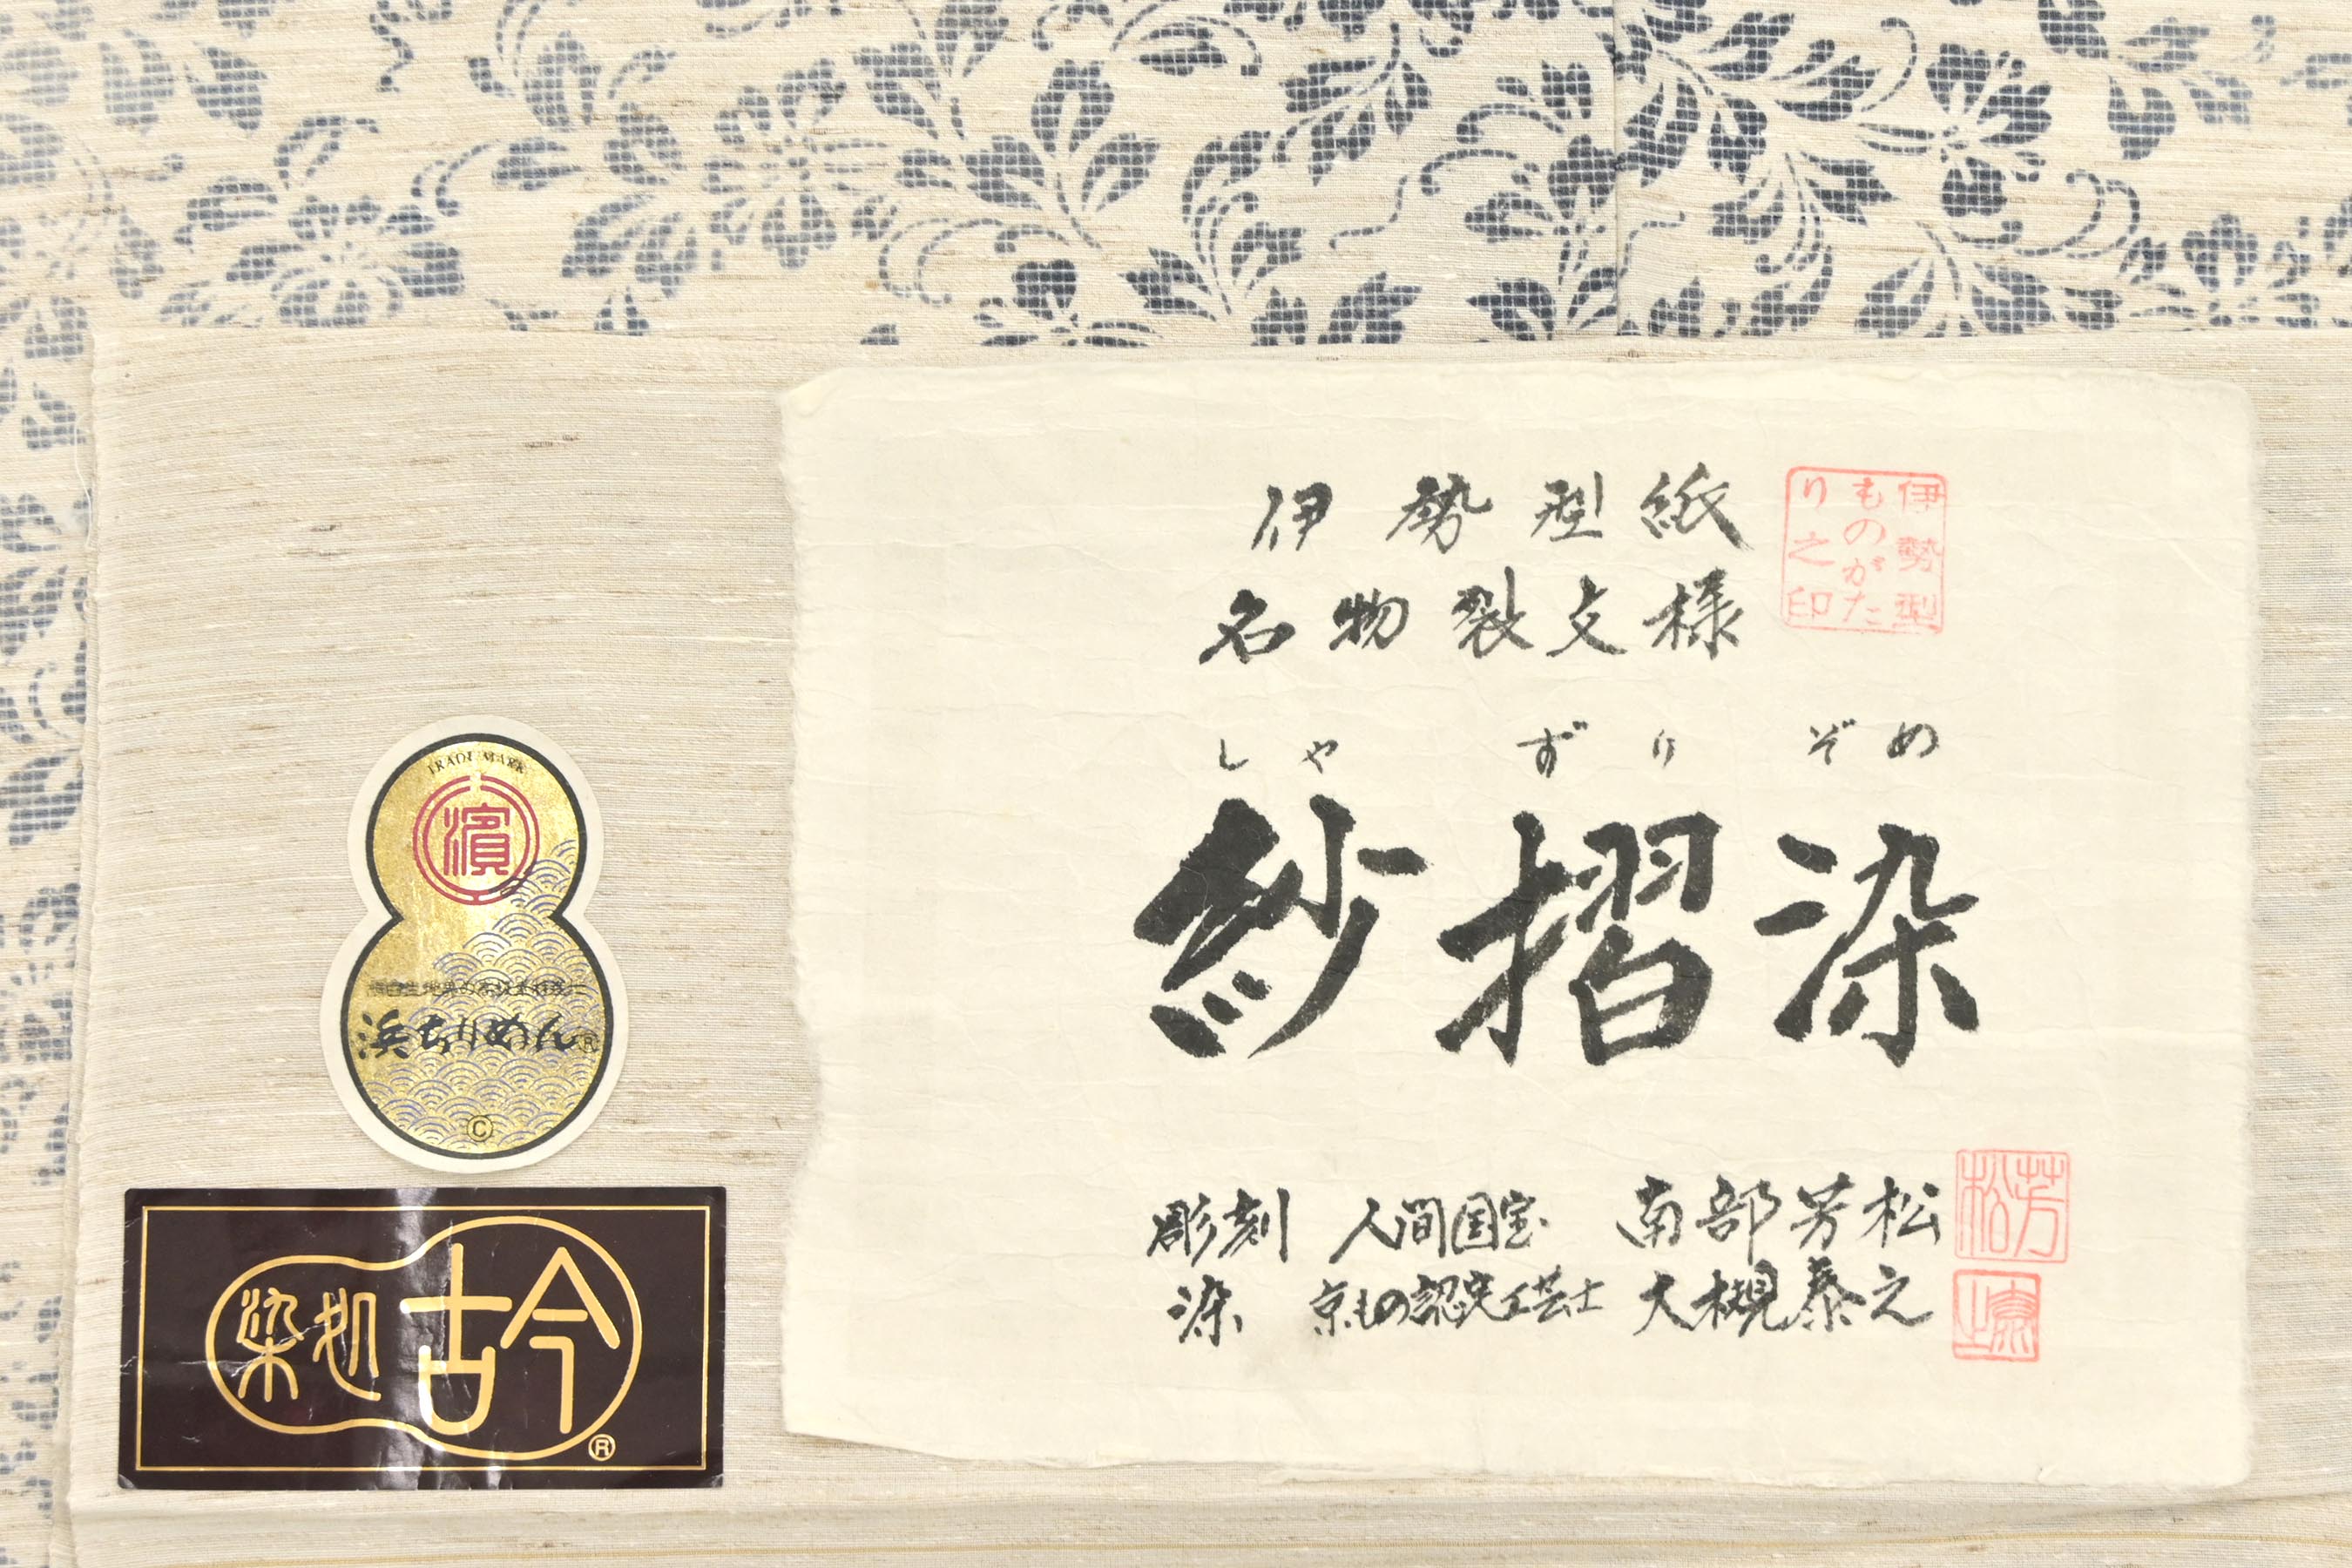 伊勢型紙
名物裂文様
伊勢型
ものがた
り之印
しゃずりぞめ
紗摺染
彫刻 人間国宝 南部芳松
芳松
染 京もの認定工芸士 大槻泰之
TRADE MARK
濱
浜ちりめん®
©
染処 古今
®